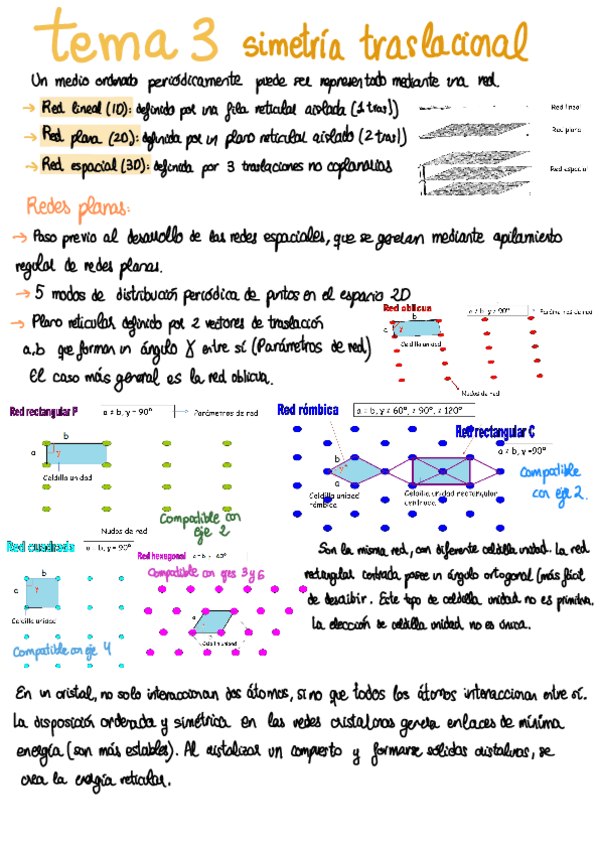 tema 3 simetría traslacional
Un medio ordenado periódicamente puede ser representado mediante una red.
→ Red lineal (1D): definido por una fila reticular aislada (1 tras))
→ Red plana (2D): definida por un plano reticular aislado (2 tras))
→ Red espacial (3D): definida por 3 traslaciones no coplanarias
Red lineal
Red plana
Red espacial
Redes planas:
→ Paso previo al desarrollo de las redes espaciales, que se generan mediante apilamiento
regular de redes planas.
→ 5 modos de distribución periódica de puntos en el espacio 2D
→ Plano reticular definido por 2 vectores de traslación
a,b que forman un ángulo γ entre sí (Parámetros de red)
El caso más general es la red oblicua.
Red oblicua
a ≠ b, γ ≠ 90°
Parámetros de red
b
a
γ
Celdilla unidad
Nudos de red
Red rectangular P
a ≠ b, γ = 90°
Parámetros de red
b
a
γ
Celdilla unidad
Nudos de red
Compatible con
eje 2
Red rómbica
a = b, γ ≠ 60°, ≠ 90°, ≠ 120°
Red rectangular C
a ≠ b, γ =90°
b
γ
a
Celdilla unidad
rómbica
Celdilla unidad rectangular
centrada
Compatible
con eje 2.
Red cuadrada
a = b, γ = 90°
b
a
γ
Celdilla unidad
Compatible con eje 4
Red hexagonal
Compatible con ejes 3 y 6
Celdilla unidad
Son la misma red, con diferente celdilla unidad. La red
rectangular centrada posee un ángulo ortogonal (más fácil
de describir. Este tipo de celdilla unidad no es primitiva.
La elección de celdilla unidad no es única.
En un cristal, no solo interaccionan dos átomos, si no que todos los átomos interaccionan entre sí.
La disposición ordenada y simétrica en las redes cristalinas genera enlaces de mínima
energía (son más estables). Al cristalizar un compuesto y formarse sólidos cristalinos, se
crea la energía reticular.